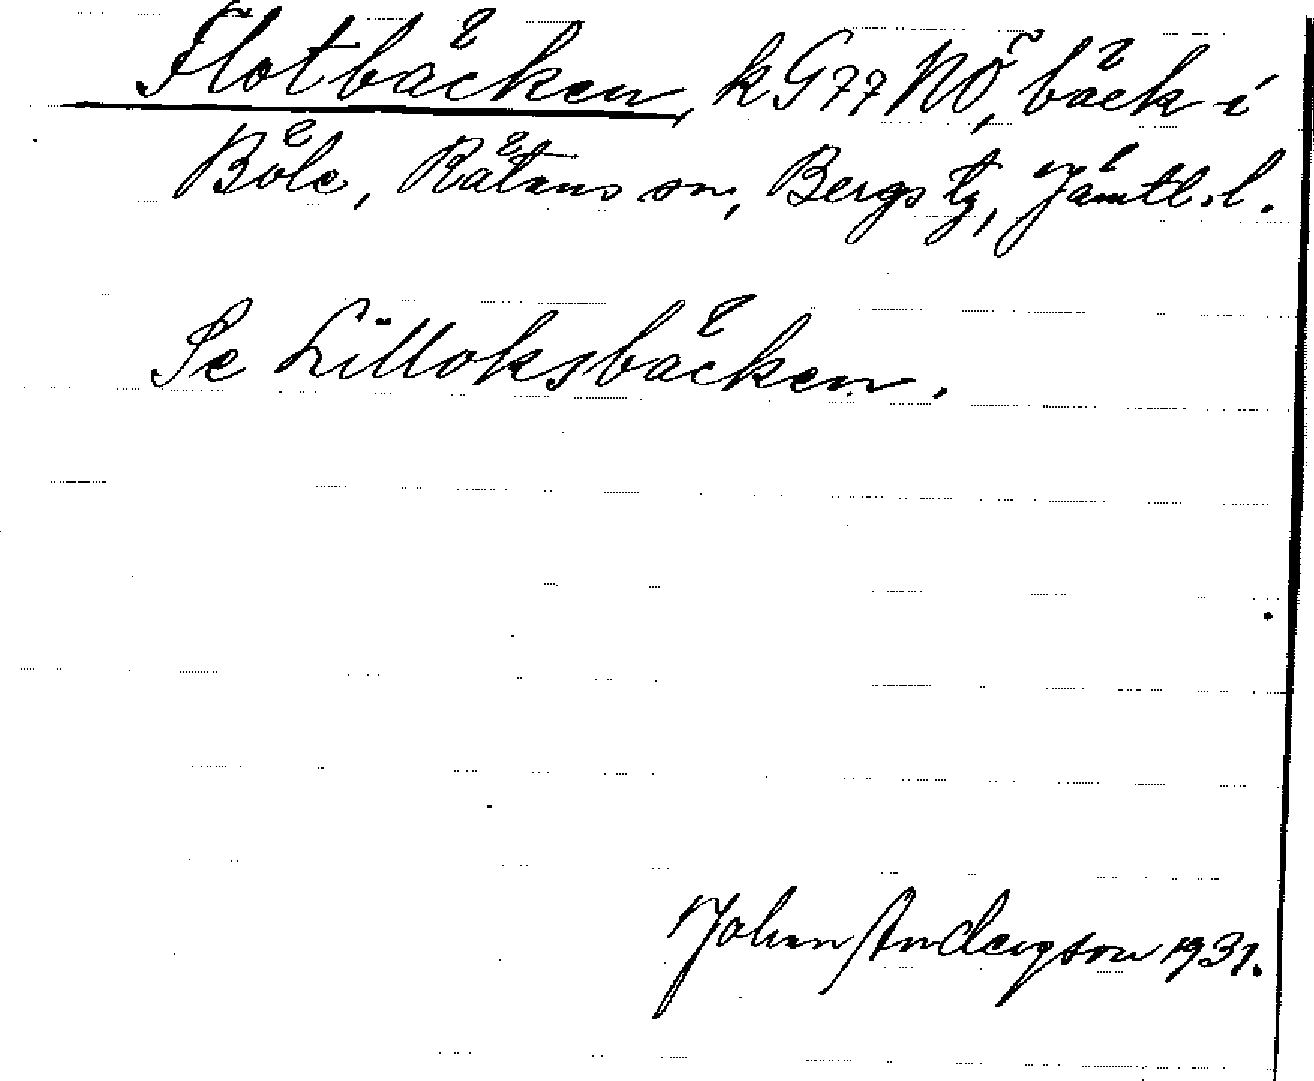 Flotbäcken, k G77 NÖ, bäck i
Böle, Rätans sn, Bergs tg, Jämtl. l.
Se Lilloksbäcken.
Johan Anderson 1931.